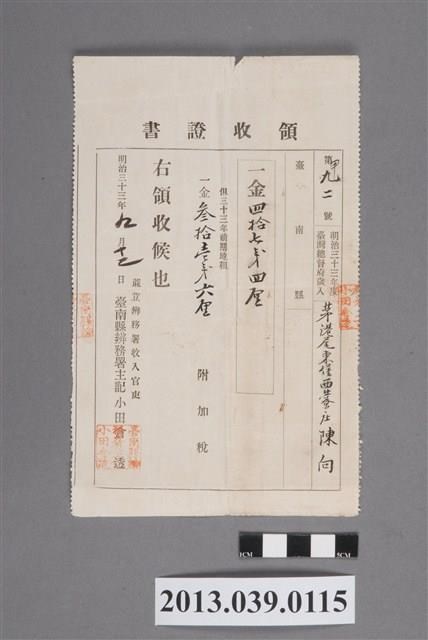 領收證書
第 九二 號
明治三十三年度
臺灣總督府歲入
茅港尾東堡西寮庄 陳向
臺南縣
一金四拾七戔四厘
但三十三年前期地租
一金叁拾壹戔六厘
附加稅
右領收候也
明治三十三年九月十二日
辨務署收入官吏
臺南縣辨務署主記 小田倉透
1CM
5CM
2013.039.0115